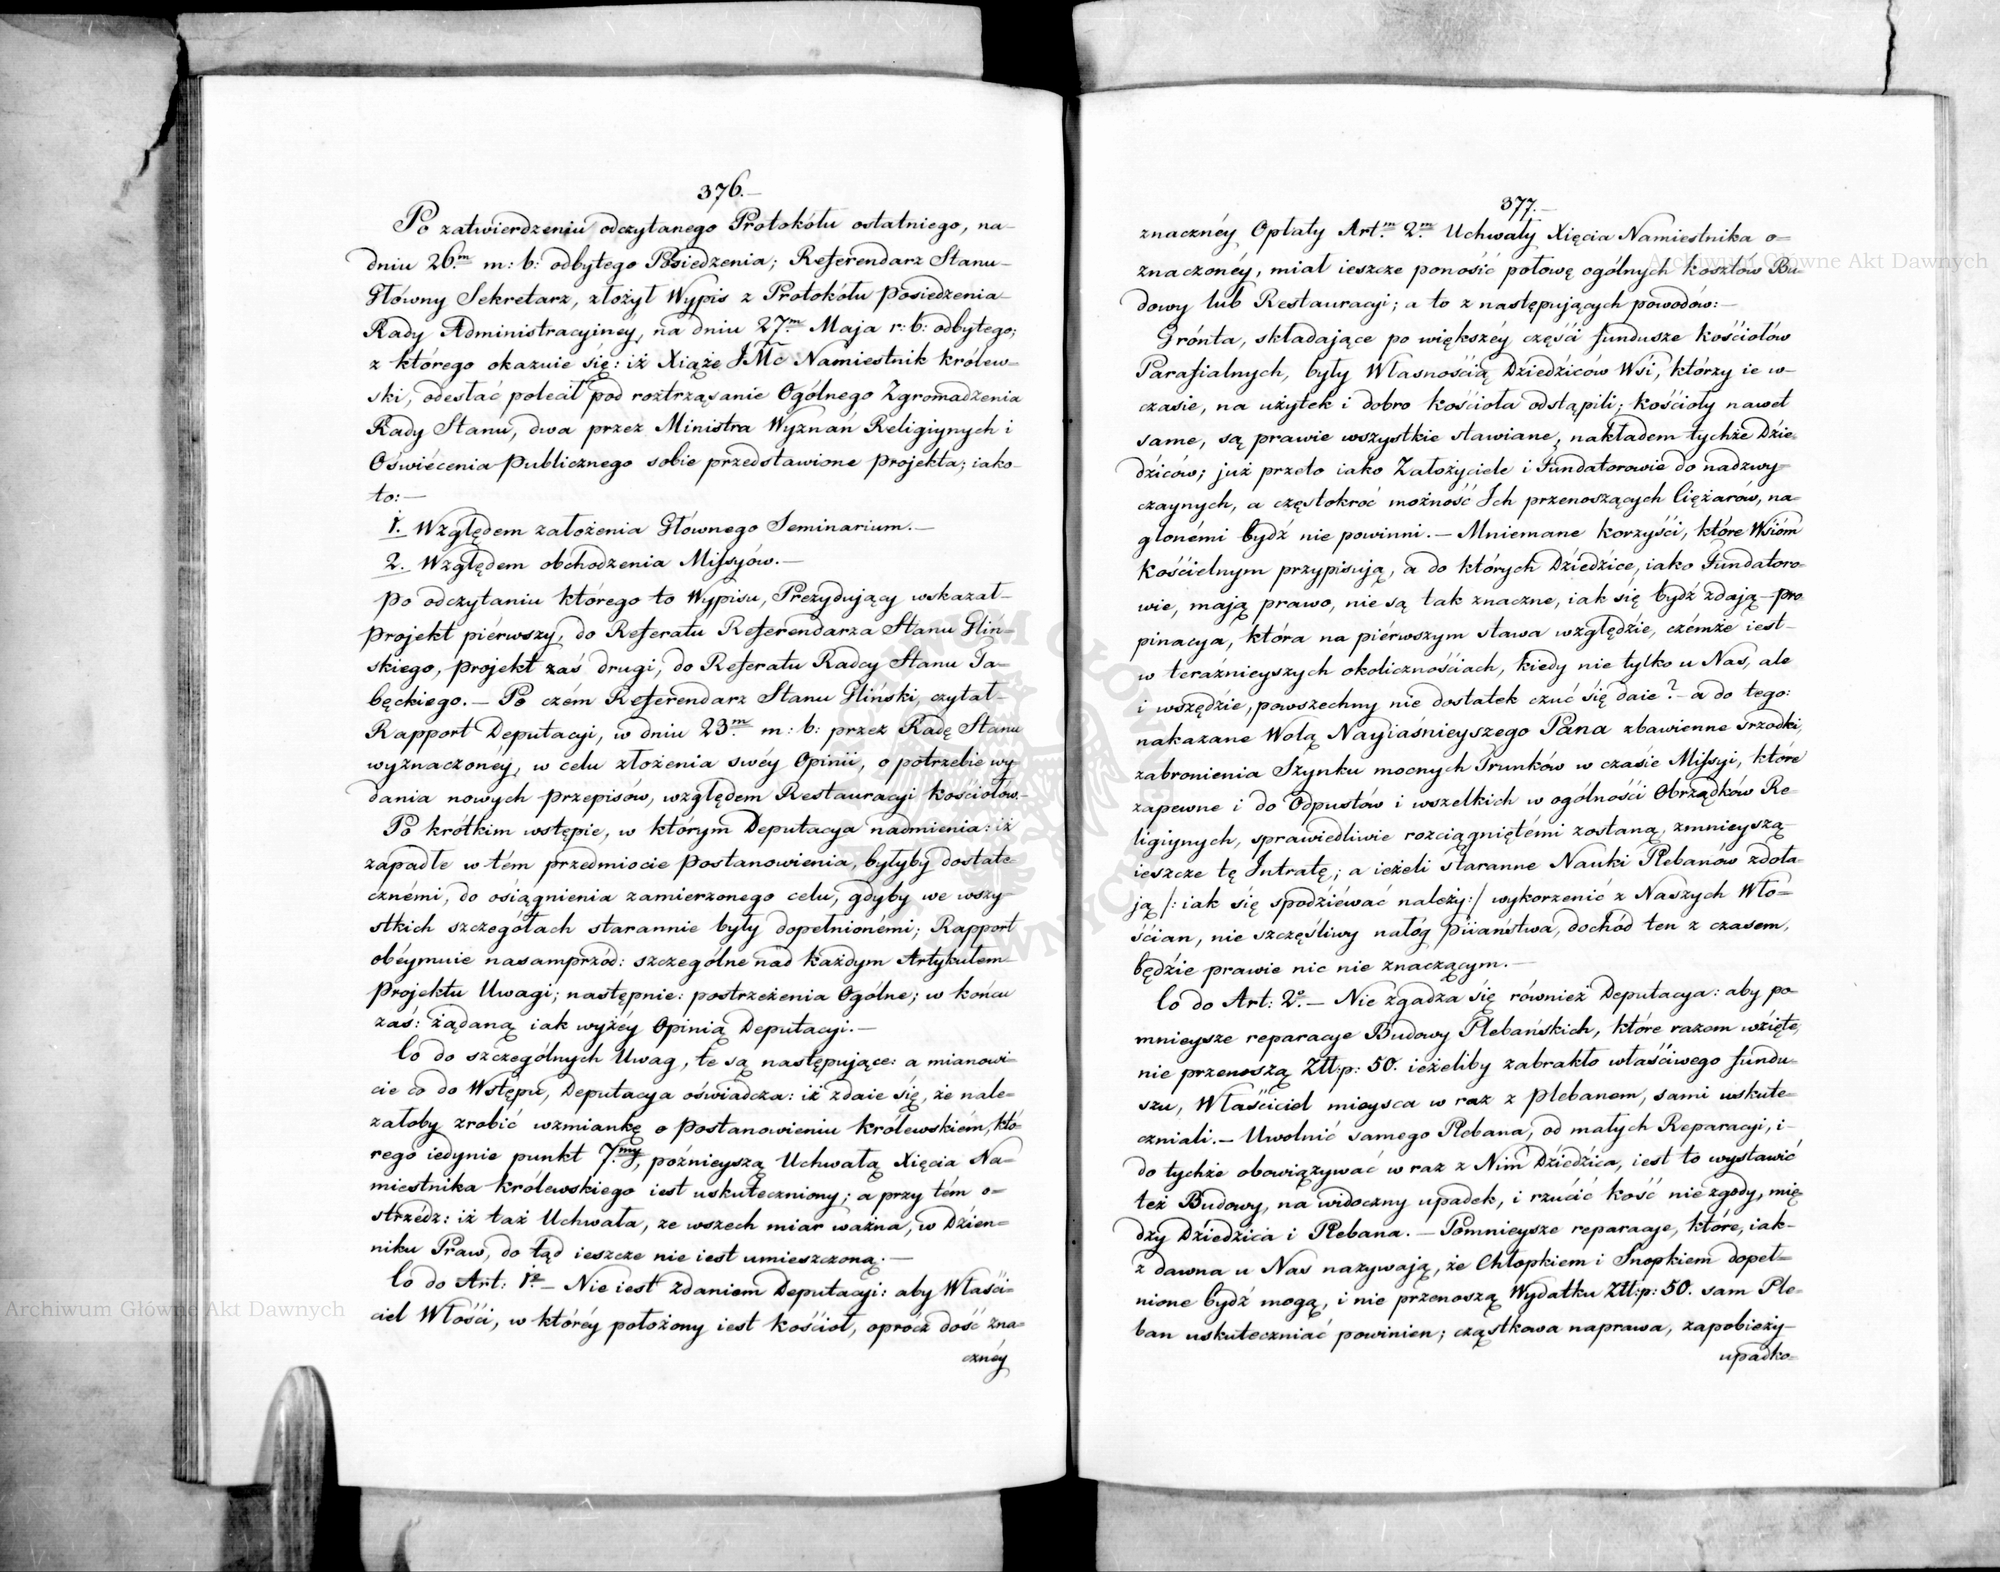 376.—
Po zatwierdzeniu odczytanego Protokółu ostatniego, na-
dniu 26.m m: b: odbytego Posiedzenia; Referendarz Stanu-
Główny Sekretarz, złożył Wypis z Protokółu Posiedzenia
Rady Administracyiney, na dniu 27.m Maja r: b: odbytego;
z którego okazuie się: iż Xiąże JMć Namiestnik królew-
ski, odesłać polecił pod roztrząsanie Ogólnego Zgromadzenia
Rady Stanu, dwa przez Ministra Wyznań Religiynych i
Oświécenia Publicznego sobie przedstawione Projekta; iako-
to:—
1. Względem założenia Głównego Seminarium.—
2. Względem obchodzenia Missyów.—
Po odczytaniu którego to Wypisu, Prezydujący wskazał-
Projekt piérwszy, do Referatu Referendarza Stanu Gliń-
skiego, Projekt zaś drugi, do Referatu Radcy Stanu Ta-
bęckiego.— Po czém Referendarz Stanu Gliński, czytał-
Rapport Deputacyi, w dniu 23.m m: b: przez Radę Stanu
wyznaczonéy, w celu złożenia swéy Opinii, o potrzebie wy-
dania nowych przepisów, względem Restauracyi kościołów.-
Po krótkim wstępie, w którym Deputacya nadmienia: iż
zapadłe w tém przedmiocie Postanowienia, byłyby dostate-
cznémi, do osiągnienia zamierzonego celu, gdyby we wszy-
stkich szczegółach starannie były dopełnionémi; Rapport
obéymuie nasamprzód: szczególne nad każdym Artykułem
Projektu Uwagi; następnie: postrzeżenia Ogólne; w końcu
zaś: żądaną iak wyżéy Opinią Deputacyi.—
Co do szczególnych Uwag, te są następujące: a mianowi-
cie co do Wstępu, Deputacya oświadcza: iż zdaie się, że nale-
żałoby zrobić wzmiankę o Postanowieniu królewskiém, któ-
rego iedynie punkt 7.my, poźnieyszą Uchwałą Xięcia Na-
miestnika królewskiego iest uskuteczniony; a przy tém o-
strzédz: iż taż Uchwała, ze wszech miar ważna, w Dzien-
niku Praw, do tąd ieszcze nie iest umieszczoną.—
Co do Art: 1o— Nie iest zdaniem Deputacyi: aby Właści-
ciel Włości, w któréy położony iest kościoł, oprócz dość zna-
cznéy
377.—
znacznéy Opłaty Art.m 2.m Uchwały Xięcia Namiestnika o-
znaczonéy, miał ieszcze ponosić połowę ogólnych kosztów Bu-
dowy lub Restauracyi; a to z następujących powodów:—
Grónta, składające po większéy części fundusze kościołów
Parafialnych, były Własnością Dziedziców Wsi, którzy ie w-
czasie, na użytek i dobro kościoła odstąpili; kościoły nawet
same, są prawie wszystkie stawiane, nakładem tychże Dzie-
dziców; już przeto iako Założyciele i Fundatorowie do nadzwy-
czaynych, a częstokroć możność Ich przenoszących Ciężarów, na-
glonémi bydź nie powinni.— Mniemane korzyści, które Wsióm
kościelnym przypisują, a do których Dziedzice, iako Fundatoro-
wie, mają prawo, nie są tak znaczne, iak się bydź zdają-pro
pinacya, która na piérwszym stawa względzie, czémże iest-
w teraźnieyszych okolicznościach, kiedy nie tylko u Nas, ale
i wszędzie, powszechny nie dostatek czuć się daie?- a do tego:
nakazane Wolą Nayiaśnieyszego Pana zbawienne srzodki,
zabronienia Szynku mocnych Trunków w czasie Missyi, które
zapewne i do Odpustów i wszelkich w ogólności Obrządków Re-
ligiynych, sprawiedliwie rozciągniętémi zostaną, zmnieyszą
ieszcze tę Intratę; a ieżeli staranne Nauki Plebanów zdoła-
ją /: iak się spodziéwać należy:/ wykorzenić z Naszych Wło-
ścian, nie szczęśliwy nałóg piiaństwa, dochód ten z czasem,
będzie prawie nic nie znaczącym.—
Co do Art: 2o.— Nie zgadza się również Deputacya: aby po-
mnieysze reparacye Budowy Plebańskich, które razem wzięte,
nie przenoszą Złł:p: 50. ieżeliby zabrakło właściwego fundu-
szu, Właściciel mieysca w raz z Plebanem, sami uskute-
czniali.— Uwolnić samego Plebana, od małych Reparacyi, i-
do tychże obowiązywać w raz z Nim Dziedzica, iest to wystawić
też Budowy, na widoczny upadek, i rzucić kość nie zgody, mię-
dzy Dziedzica i Plebana.— Pomnieysze reparacye, które, iak-
z dawna u Nas nazywają, że Chłopkiem i Snopkiem dopeł-
nione bydź mogą, i nie przenoszą Wydatku Złł:p: 50. sam Ple-
ban uskuteczniać powinien; cząstkowa naprawa, zapobieży-
upadko-
Archiwum Główne Akt Dawnych
Archiwum Główne Akt Dawnych